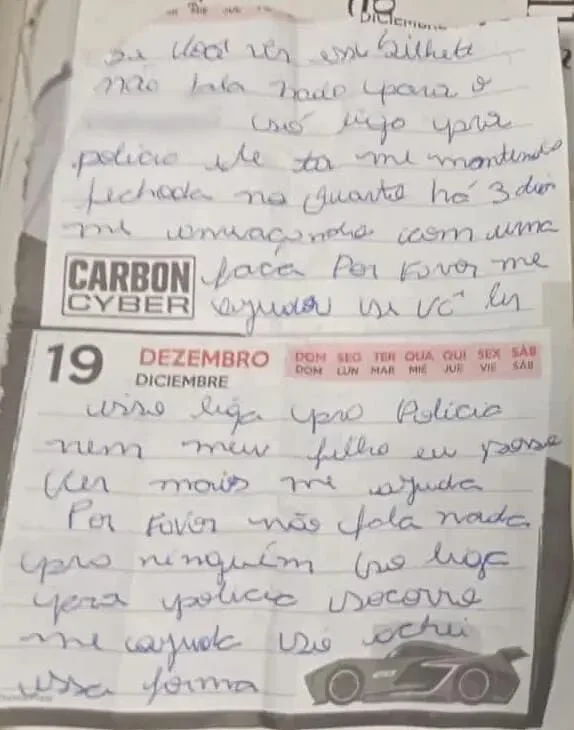 DICIEMBRE
se você ver esse bilhete
não fala nada para o
só liga pra
policia ele ta me mantendo
fechada no quarto há 3 dias
me ameaçando com uma
CARBON CYBER
faca Por Favor me
ajudar se vc ler
19 DEZEMBRO DICIEMBRE
DOM SEG TER QUA QUI SEX SÁB
DOM LUN MAR MIE JUE VIE SÁB
isso liga pra Policia
nem meu filho eu posso
ver mais me ajuda
Por Favor não fala nada
pra ninguém só liga
para policia socorro
me ajuda só achei
essa forma